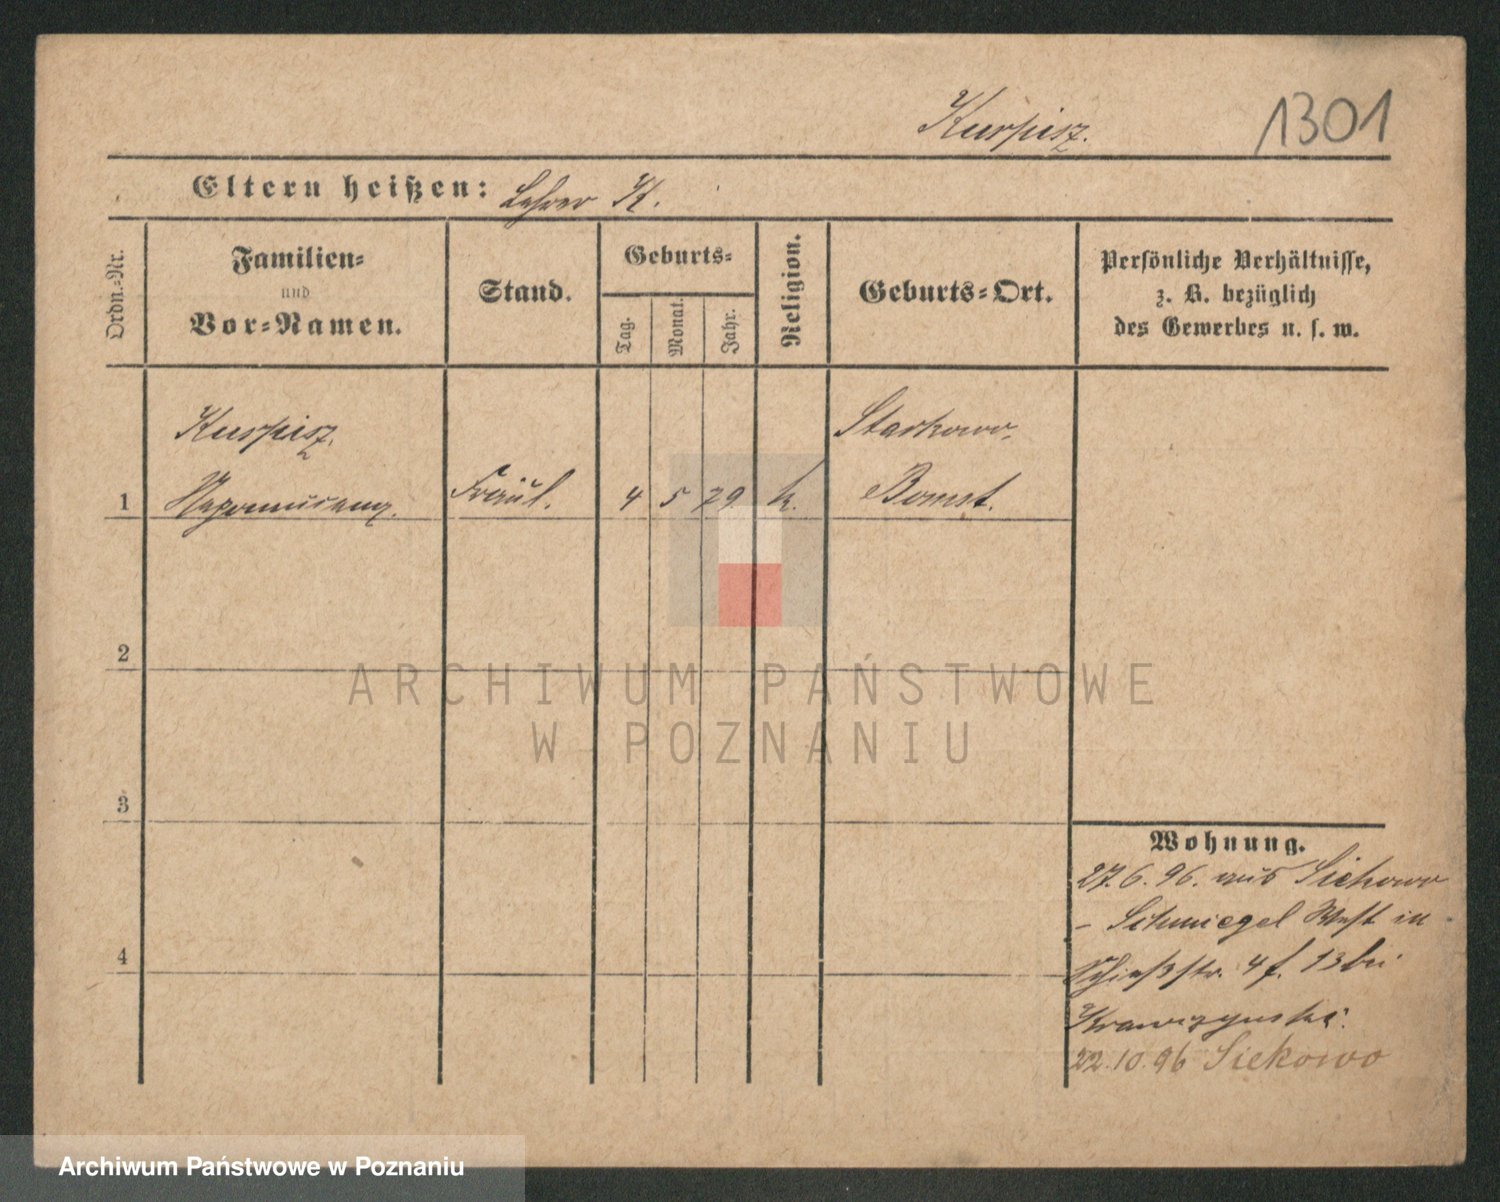 Kurpisz.
1301
Eltern heißen: Lehrer K.
Ordn.-Nr.
Familien-
und
Vor-Namen.
Stand.
Geburts-
Tag.
Monat.
Jahr.
Religion.
Geburts-Ort.
Persönliche Verhältnisse,
z. B. bezüglich
des Gewerbes u. s. w.
Kurpisz,
Starkowo,
1 Nepomucena. Fräul. 4 5 79 k. Bomst.
2
ARCHIWUM PAŃSTWOWE
W POZNANIU
3
Wohnung.
27.6.96. aus Siekowo
- Schmiegel West in
4
Schießstr. 4 f. 13 bei
Krawczynski.
22.10.96 Siekowo
Archiwum Państwowe w Poznaniu